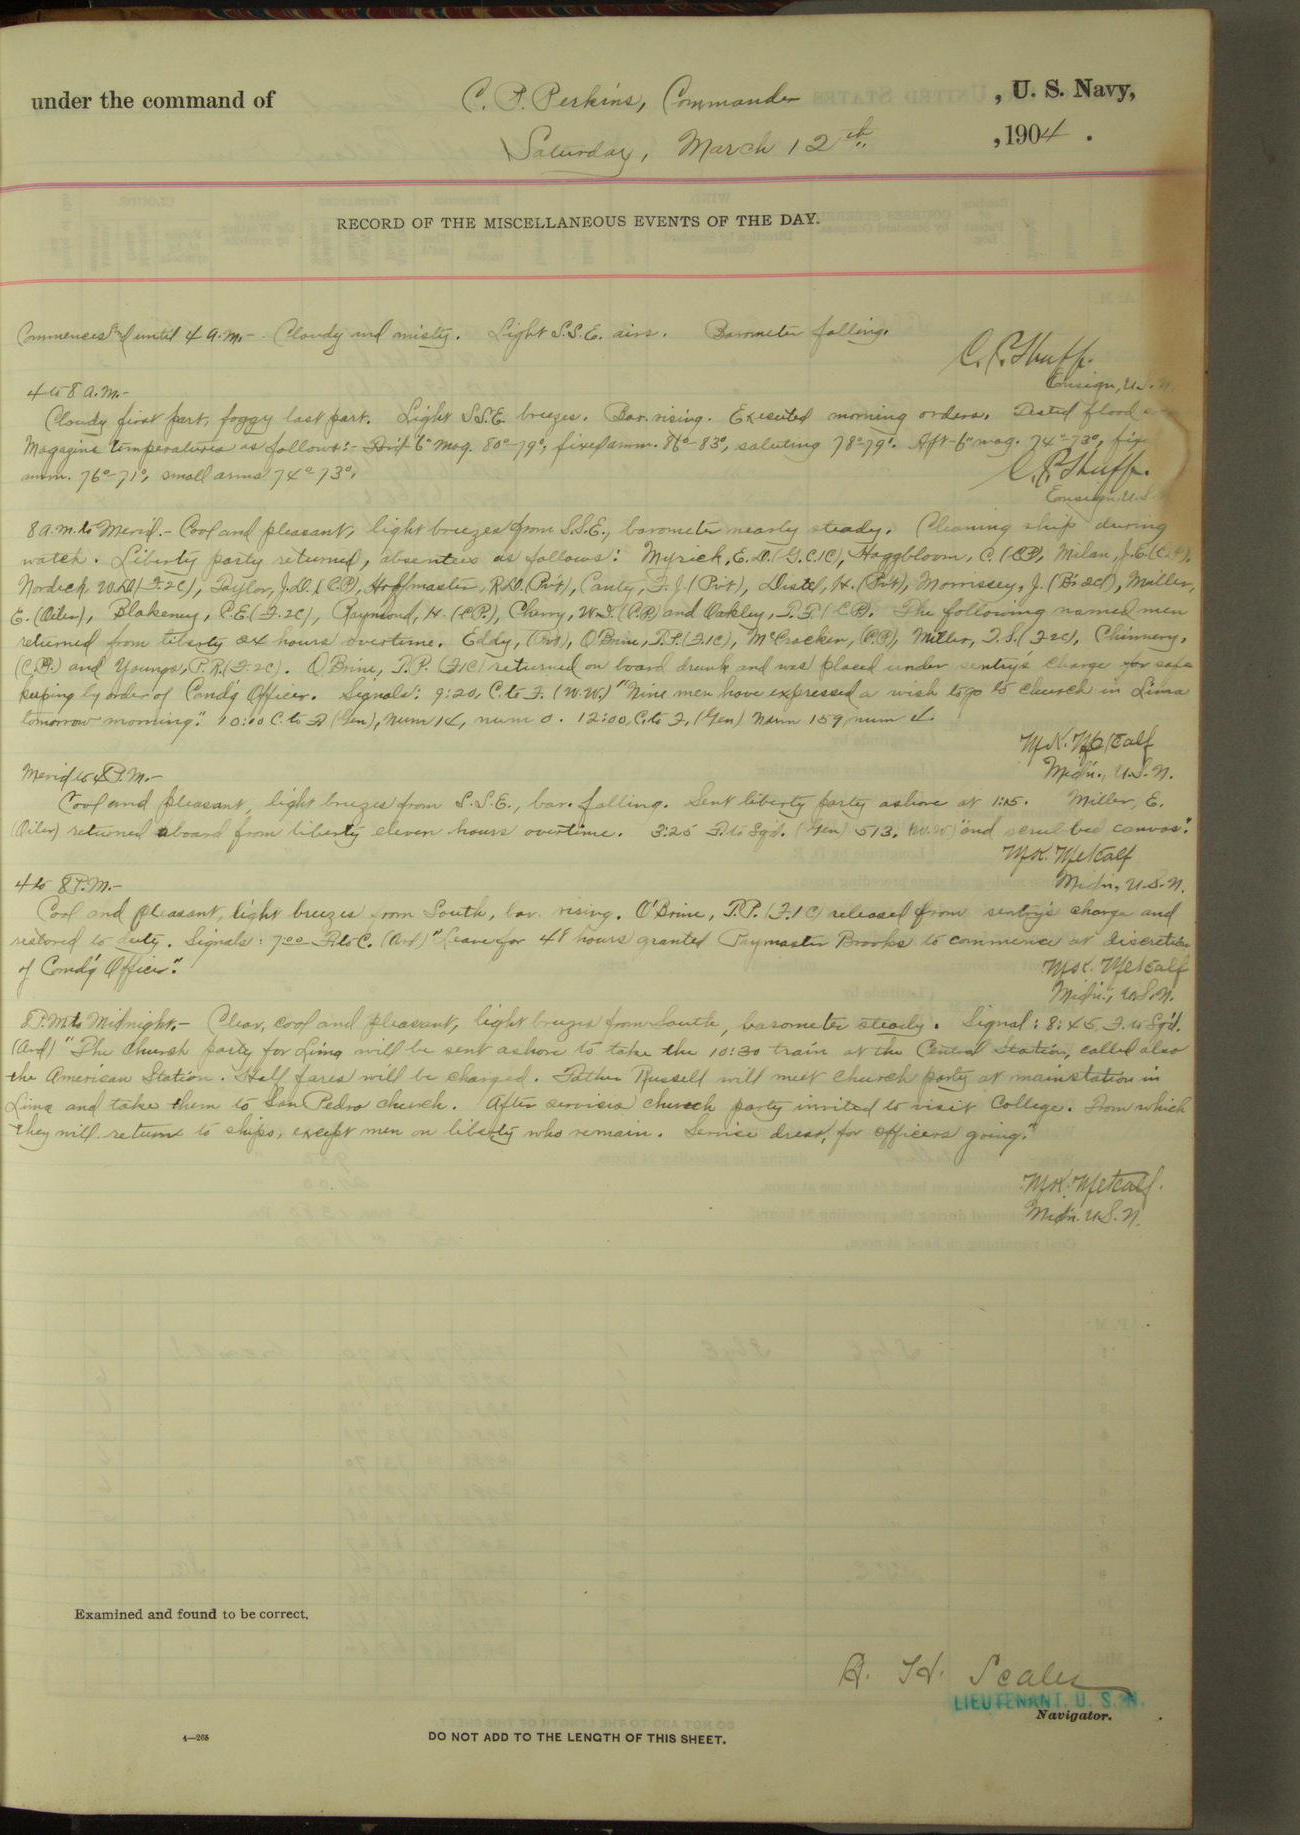 under the command of C. P. Perkins, Commander, U. S. Navy,
Saturday, March 12th, 1904.
RECORD OF THE MISCELLANEOUS EVENTS OF THE DAY.
Commences and until 4 A.M.- Cloudy and misty. Light S.S.E. airs. Barometer falling.
Ensign, U.S.N.
4 to 8 A.M.-
Cloudy first part, foggy last part. Light S.S.E. breezes. Bar. rising. Executed morning orders. Tested flood
Magazine temperatures as follows:- 6" mag. 80°-79°, fixed amm. 86°-83°, saluting 78°-79°. Aft 6" mag. 74°-73°, fix
amm. 76°-71°, small arms 74°-73°.
Ensign, U.S.
8 A.M. to Merid.- Cool and pleasant, light breezes from S.S.E., barometer nearly steady. Cleaning ship during
watch. Liberty party returned, absentees as follows: Myrick, E.D. (G.C.1C), Haggbloom, C. (C.P.), Milan, J.E. (C.P.),
Nordeck W.D. (F.2C), Taylor, J.D. (C.P.), Hoffmaster, R.D. (Pvt), Canty, F.J. (Pvt), Distel, H. (Pvt), Morrissey, J. (B. 2cl), Miller,
E. (Oiler), Blakeney, C.E. (F.2C), Raymond, H. (C.P.), Cherry, W.F. (C.P.) and Oakley, T.F. (C.P.). The following named men
returned from liberty 24 hours overtime. Eddy, (Pvt), O'Brine, P.P. (F.1C), McCracken, (C.P.), Miller, F.S. (F.2C), Chinnery,
(C.P.) and Youngs, P.R. (F.2C). O'Brine, P.P. (F.1C) returned on board drunk and was placed under sentry's charge for safe
keeping by order of Comd'g Officer. Signals: 9:20, C. to F. (W.W.) "Nine men have expressed a wish to go to church in Lima
tomorrow morning." 10:00 C. to F. (Gen), Num 14, num 0. 12:00, C. to F. (Gen) Num 159, num
M.K. Metcalf
Midn., U.S.N.
Merid to 4 P.M.-
Cool and pleasant, light breezes from S.S.E., bar. falling. Sent liberty party ashore at 1:15. Miller, E.
(Oiler) returned aboard from liberty eleven hours overtime. 3:25 F. to Sqd. (Gen) 513. (W.W.) "and scrub bed canvas."
M.K. Metcalf
Midn., U.S.N.
4 to 8 P.M.-
Cool and pleasant, light breezes from South, bar. rising. O'Brine, P.P. (F.1C) released from sentry's charge and
restored to duty. Signals: 7:00 F. to C. (Ard) "Leave for 48 hours granted Paymaster Brooks to commence at discretion
of Comd'g Officer."
M.K. Metcalf
Midn., U.S.N.
8 P.M. to Midnight.- Clear, cool and pleasant, light breezes from South, barometer steady. Signal: 8:45, F. to Sqd.
(Ard) "The church party for Lima will be sent ashore to take the 10:30 train at the Central Station, called also
the American Station. Half fares will be charged. Father Russell will meet church party at main station in
Lima and take them to San Pedro church. After services church party invited to visit College. From which
they will return to ships, except men on liberty who remain. Service dress, for officers going."
M.K. Metcalf.
Midn. U.S.N.
Examined and found to be correct.
A. H. Scales
LIEUTENANT, U. S. N.
Navigator.
4—265
DO NOT ADD TO THE LENGTH OF THIS SHEET.